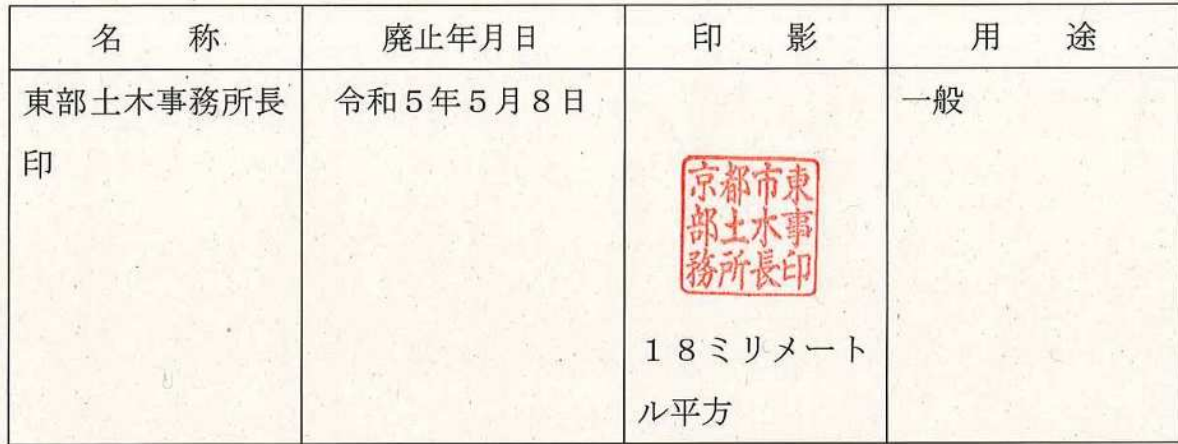 名　称
廃止年月日
印　影
用　途
東部土木事務所長
印
令和５年５月８日
京都市東
部土木事
務所長印
１８ミリメート
ル平方
一般